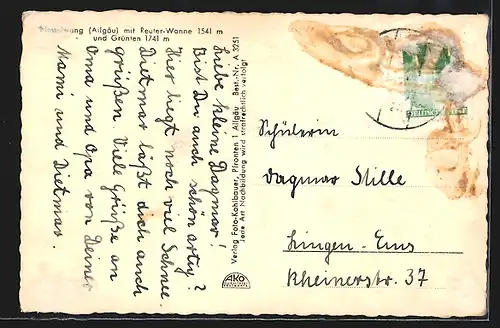 (Allgäu) mit Reuter-Wanne 1541 m
und Grünten 1741 m
Liebe kleine Dagmar!
Bist Du auch schön artig?
Hier liegt noch viel Schnee.
Dietmar läßt dich auch
grüßen. Viele Grüße an
Oma und Opa von Deiner
Mami und Dietmar.
Verlag Foto-Kohlbauer, Pfronten i. Allgäu Best.-Nr. A 3251
Jede Art Nachbildung wird strafrechtlich verfolgt
AKO
Schülerin
Dagmar Stille
Lingen-Ems
Rheinerstr. 37